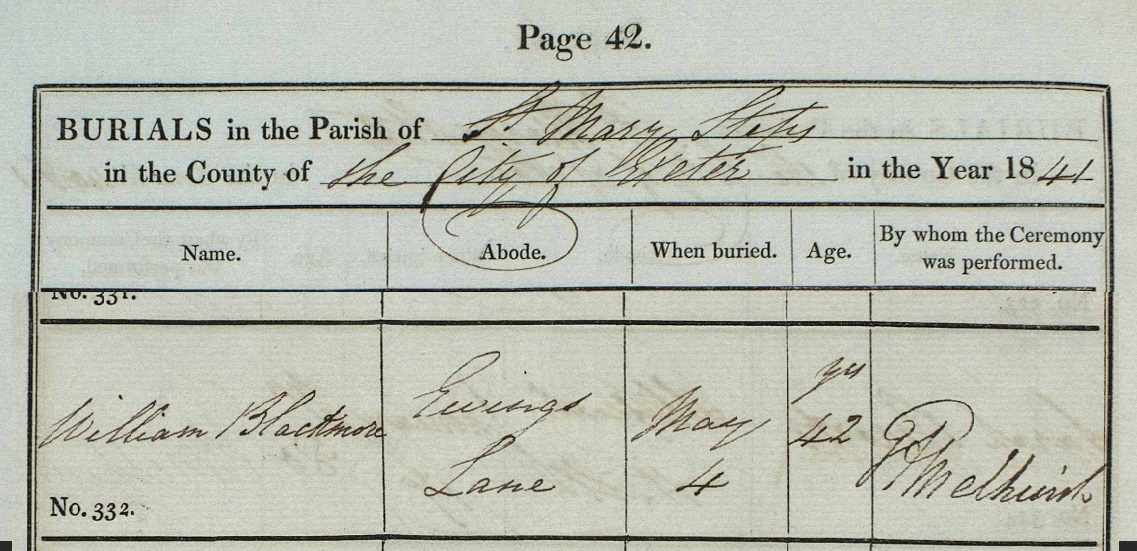 Page 42.
BURIALS in the Parish of St Mary Steps
in the County of the City of Exeter in the Year 1841
Name. Abode. When buried. Age. By whom the Ceremony was performed.
No. 331.
William Blackmore Ewings Lane May 4 42 yrs
No. 332.